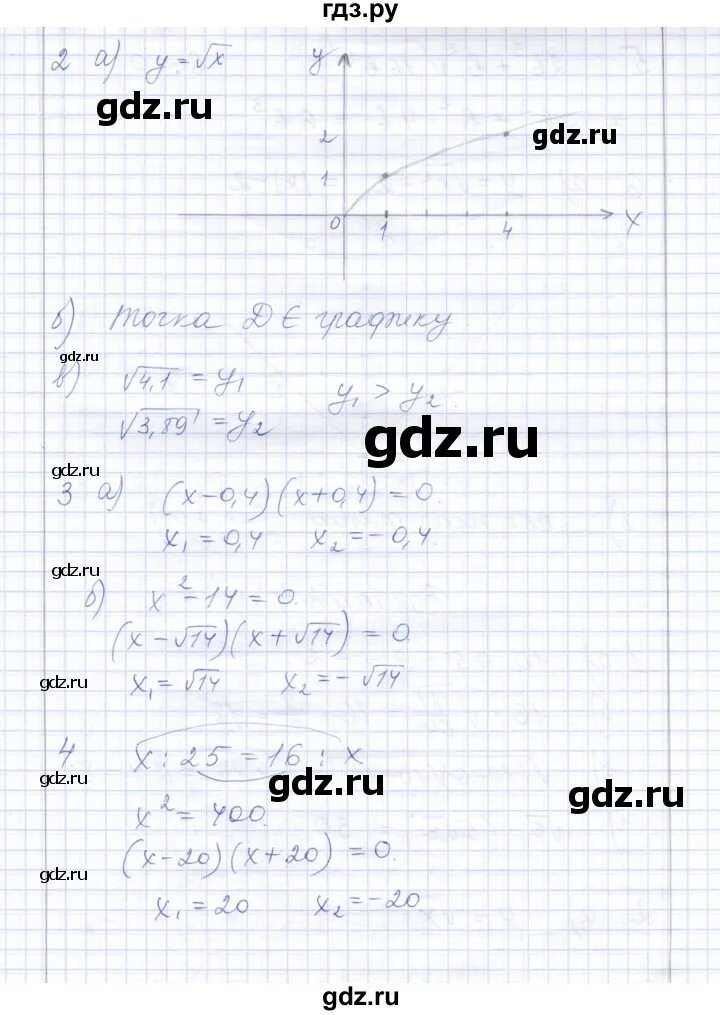 гдз.ру
2 а) y = √x
y
gdz.ru
gdz.ru
2
1
0 1 4 x
б) точка D ∈ графику
gdz.ru
в) √4,1 = y₁
y₁ > y₂.
√3,89 = y₂
gdz.ru
gdz.ru
3 а) (x-0,4)(x+0,4) = 0.
x₁ = 0,4 x₂ = -0,4.
gdz.ru
б) x² - 14 = 0.
(x-√14)(x+√14) = 0.
gdz.ru
x₁ = √14 x₂ = -√14
4. x : 25 = 16 : x.
gdz.ru
gdz.ru
gdz.ru
x² = 400.
(x-20)(x+20) = 0.
gdz.ru
x₁ = 20 x₂ = -20
gdz.ru